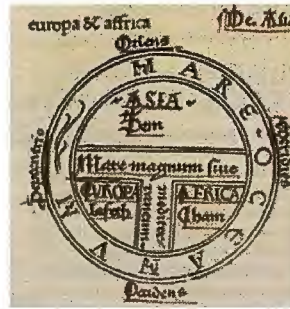 europa & affrica
Oriens
MARE OCCEANVM
ASIA
Sem
Mare magnum siue
mediterraneum
EUROPA
Iafeth
AFRICA
Cham
Septentrio
Meridies
Occidens